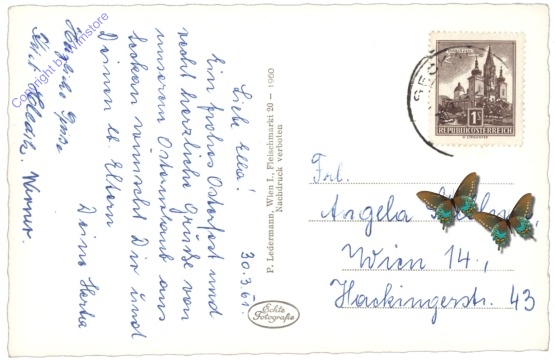 30.3.61.
Liebe Ella!
Ein frohes Osterfest und
recht herzliche Grüße von
unserem Osterurlaub aus
wünscht Dir und
Deinen lb. Eltern
Deine Herta
Herzliche Grüße
Werner.
Copyright by Wimstore
P. Ledermann, Wien I., Fleischmarkt 20 – 1960
Nachdruck verboten
Echte
Fotografie
1S
REPUBLIK ÖSTERREICH
Frl.
Angela
Wien 14.,
Hackingerstr. 43